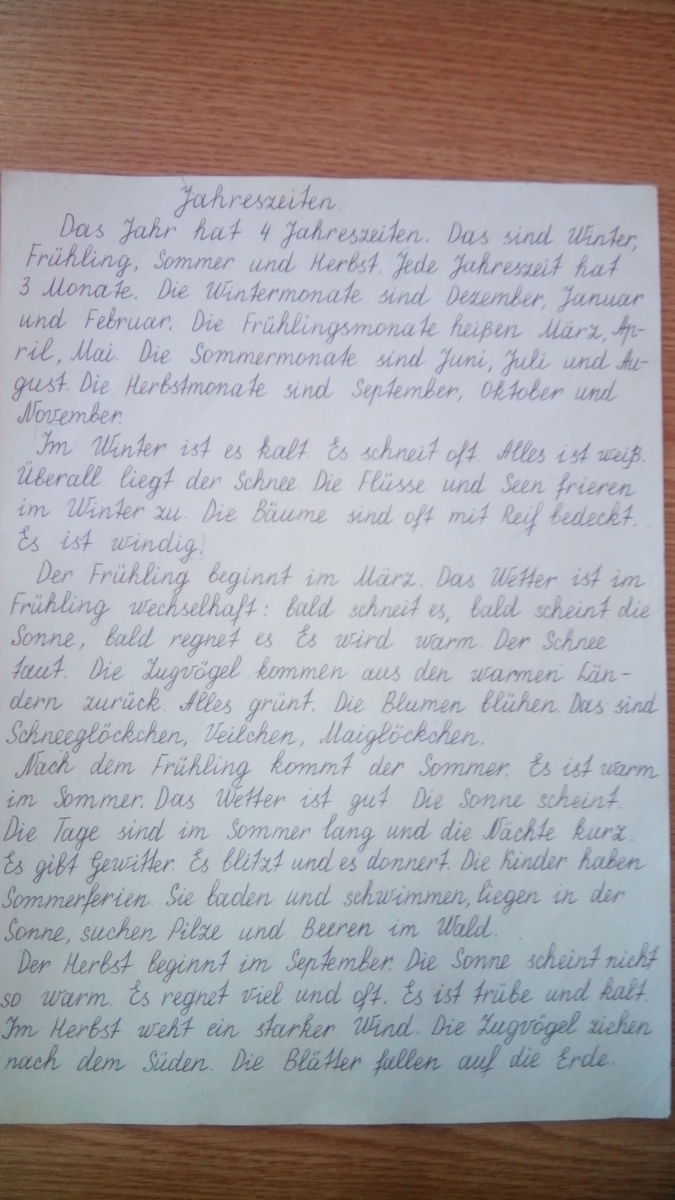 Jahreszeiten.
Das Jahr hat 4 Jahreszeiten. Das sind Winter,
Frühling, Sommer und Herbst. Jede Jahreszeit hat
3 Monate. Die Wintermonate sind Dezember, Januar
und Februar. Die Frühlingsmonate heißen März, Ap-
ril, Mai. Die Sommermonate sind Juni, Juli und Au-
gust. Die Herbstmonate sind September, Oktober und
November.
Im Winter ist es kalt. Es schneit oft. Alles ist weiß.
Überall liegt der Schnee. Die Flüsse und Seen frieren
im Winter zu. Die Bäume sind oft mit Reif bedeckt.
Es ist windig.
Der Frühling beginnt im März. Das Wetter ist im
Frühling wechselhaft: bald schneit es, bald scheint die
Sonne, bald regnet es. Es wird warm. Der Schnee
taut. Die Zugvögel kommen aus den warmen Län-
dern zurück. Alles grünt. Die Blumen blühen. Das sind
Schneeglöckchen, Veilchen, Maiglöckchen.
Nach dem Frühling kommt der Sommer. Es ist warm
im Sommer. Das Wetter ist gut. Die Sonne scheint.
Die Tage sind im Sommer lang und die Nächte kurz.
Es gibt Gewitter. Es blitzt und es donnert. Die Kinder haben
Sommerferien. Sie baden und schwimmen, liegen in der
Sonne, suchen Pilze und Beeren im Wald.
Der Herbst beginnt im September. Die Sonne scheint nicht
so warm. Es regnet viel und oft. Es ist trübe und kalt.
Im Herbst weht ein starker Wind. Die Zugvögel ziehen
nach dem Süden. Die Blätter fallen auf die Erde.